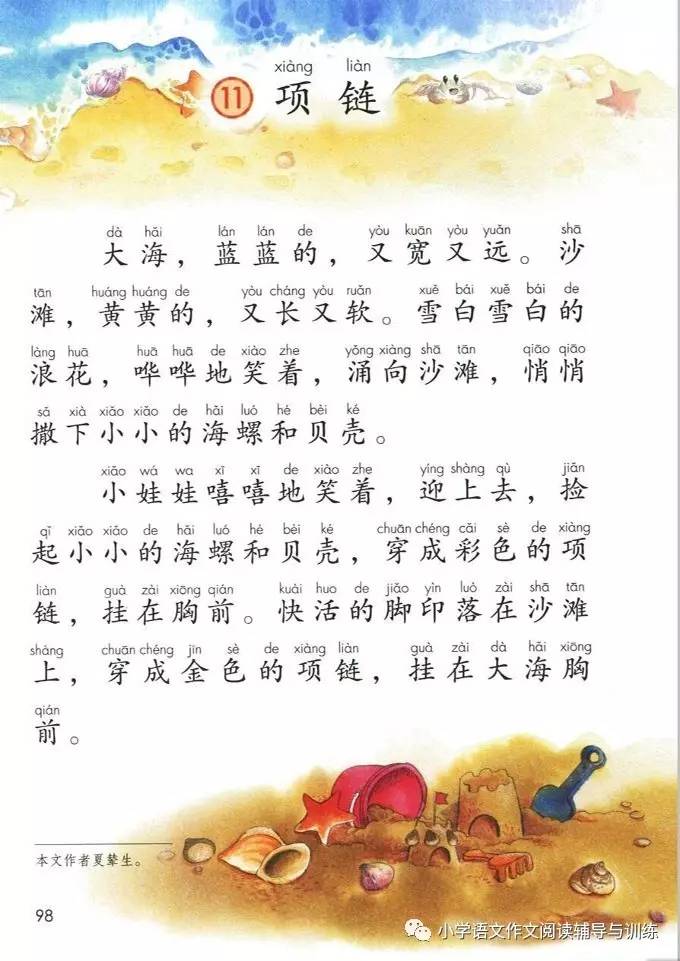 xiàng liàn
11 项链
dà hǎi lán lán de yòu kuān yòu yuǎn shā
大海，蓝蓝的，又宽又远。沙
tān huáng huáng de yòu cháng yòu ruǎn xuě bái xuě bái de
滩，黄黄的，又长又软。雪白雪白的
làng huā huā huā de xiào zhe yǒng xiàng shā tān qiāo qiāo
浪花，哗哗地笑着，涌向沙滩，悄悄
sǎ xià xiǎo xiǎo de hǎi luó hé bèi ké
撒下小小的海螺和贝壳。
xiǎo wá wa xī xī de xiào zhe yíng shàng qù jiǎn
小娃娃嘻嘻地笑着，迎上去，捡
qǐ xiǎo xiǎo de hǎi luó hé bèi ké chuān chéng cǎi sè de xiàng
起小小的海螺和贝壳，穿成彩色的项
liàn guà zài xiōng qián kuài huo de jiǎo yìn luò zài shā tān
链，挂在胸前。快活的脚印落在沙滩
shàng chuān chéng jīn sè de xiàng liàn guà zài dà hǎi xiōng
上，穿成金色的项链，挂在大海胸
qián
前。
本文作者夏辇生。
98
小学语文作文阅读辅导与训练